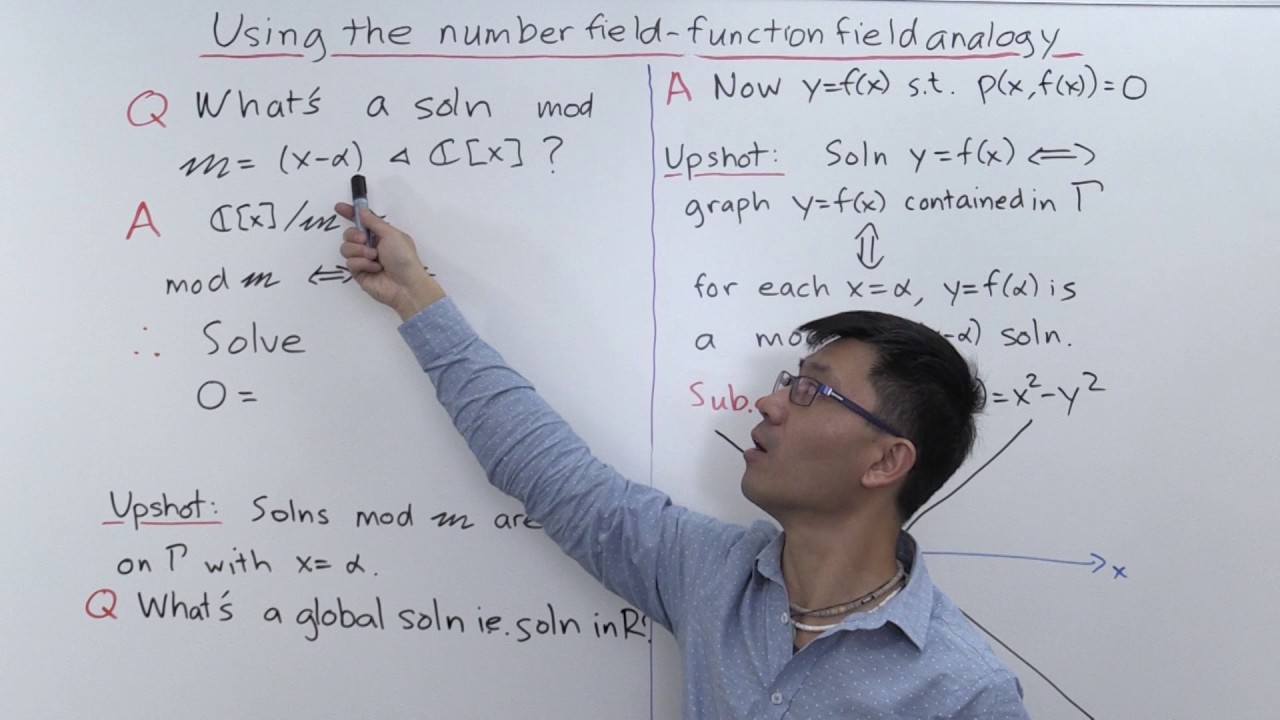 Using the number field-function field analogy
Q What's a soln mod
m = (x-α) ⊲ ℂ[x] ?
A ℂ[x]/m
mod m ⟺
∴ Solve
0 =
Upshot: Solns mod m are
on Γ with x= α.
Q What's a global soln ie. soln in R?
A Now y=f(x) s.t. p(x,f(x))=0
Upshot: Soln y=f(x) ⟺
graph y=f(x) contained in Γ
⇕
for each x=α, y=f(α) is
a -α) soln.
Sub. =x²-y²
x